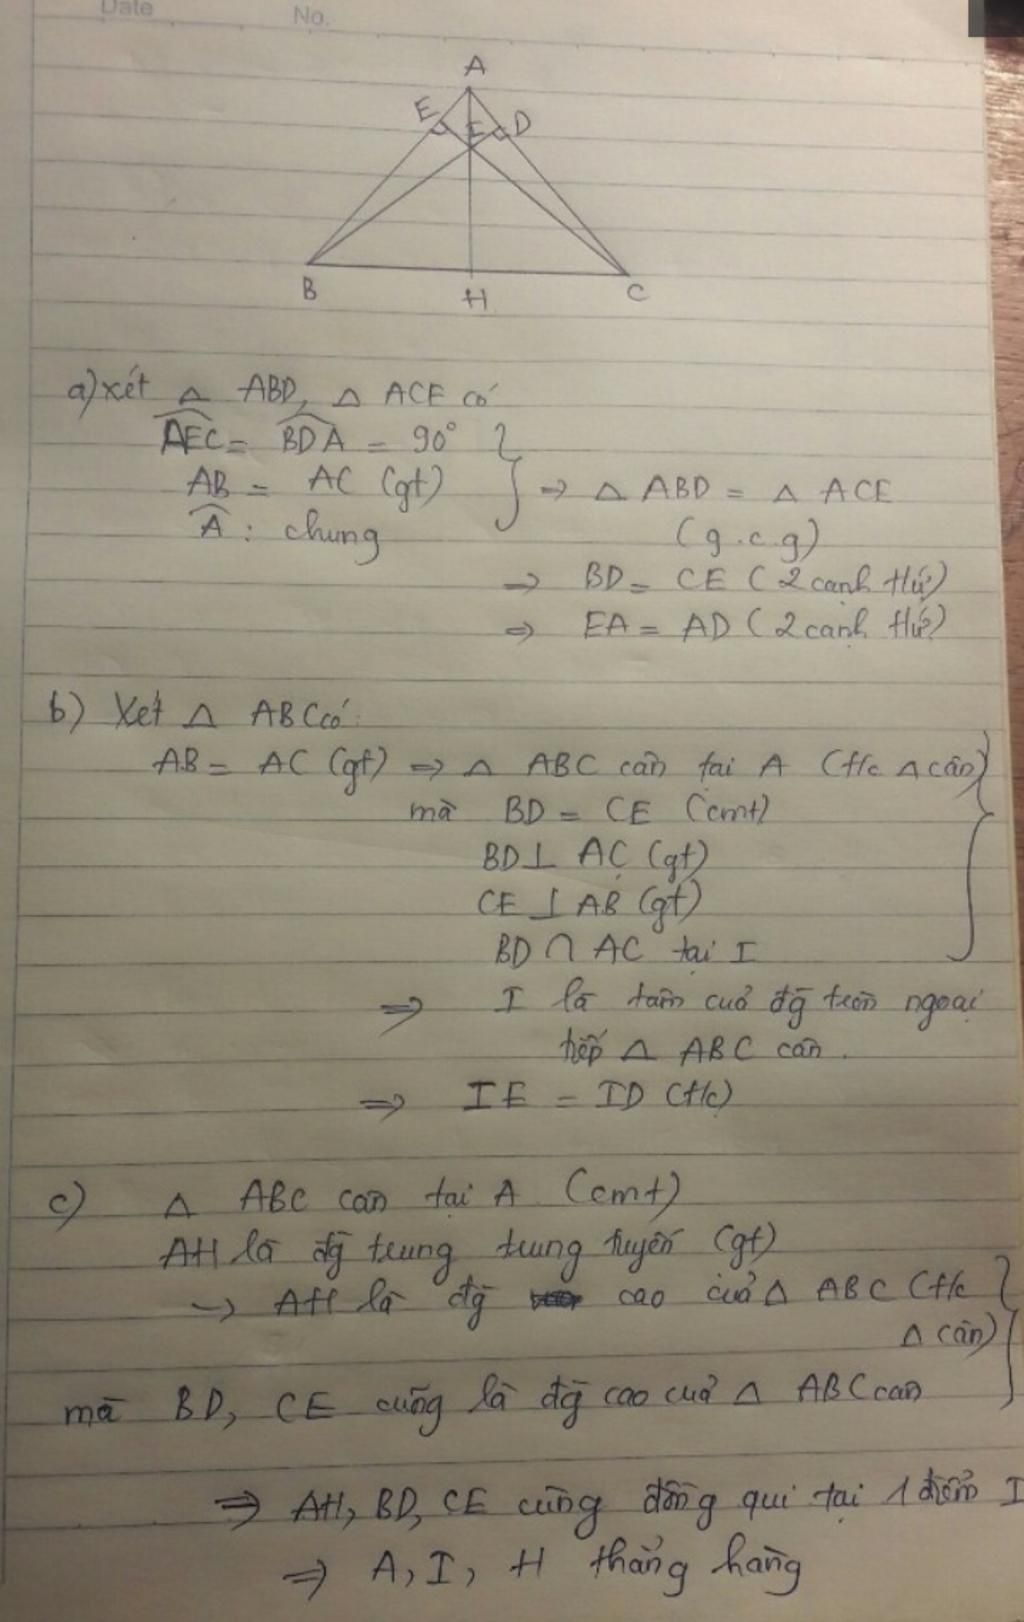 Date No.
A
E I D
B H C
a) xét △ ABD, △ ACE có
AEC = BDA = 90°
AB = AC (gt) ⇒ △ ABD = △ ACE
A : chung (g.c.g)
⇒ BD = CE (2 cạnh tứ)
⇒ EA = AD (2 cạnh tứ)
b) Xét △ ABC có:
AB = AC (gt) ⇒ △ ABC cân tại A (t/c △ cân)
mà BD = CE (cmt)
BD ⊥ AC (gt)
CE ⊥ AB (gt)
BD ∩ AC tại I
⇒ I là tâm của đg tròn ngoại
tiếp △ ABC cân.
⇒ IE = ID (t/c)
c) △ ABC cân tại A (cmt)
AH là đg trung trung tuyến (gt)
→ AH là đg cao của △ ABC (t/c
△ cân)
mà BD, CE cũng là đg cao của △ ABC cân
⇒ AH, BD, CE cùng đồng qui tại 1 điểm I
⇒ A, I, H thẳng hàng